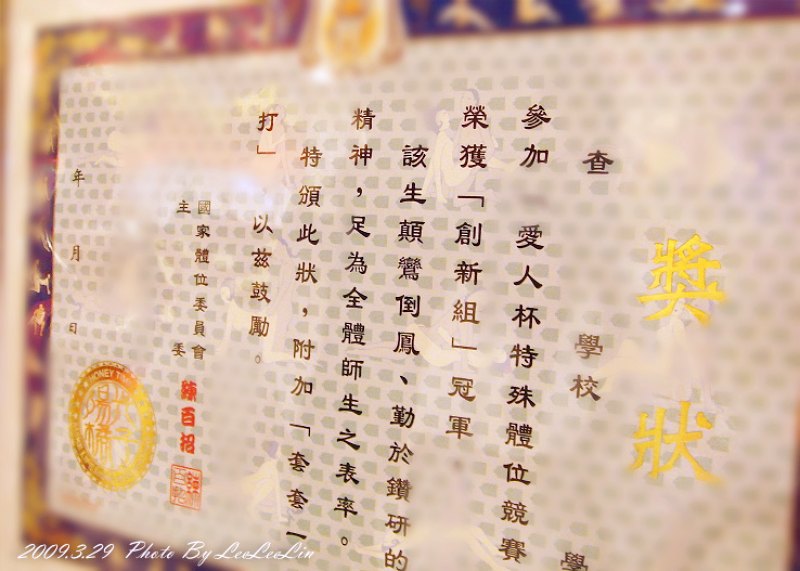 獎狀
查 學校 學
參加 愛人杯特殊體位競賽
榮獲「創新組」冠軍
該生顛鸞倒鳳、勤於鑽研的
精神，足為全體師生之表率。
特頒此狀，附加「套套一
打」，以茲鼓勵。
國家體位委員會
主 委
陳百招
年 月 日
MONEY
2009.3.29 Photo By LeeLeeLin